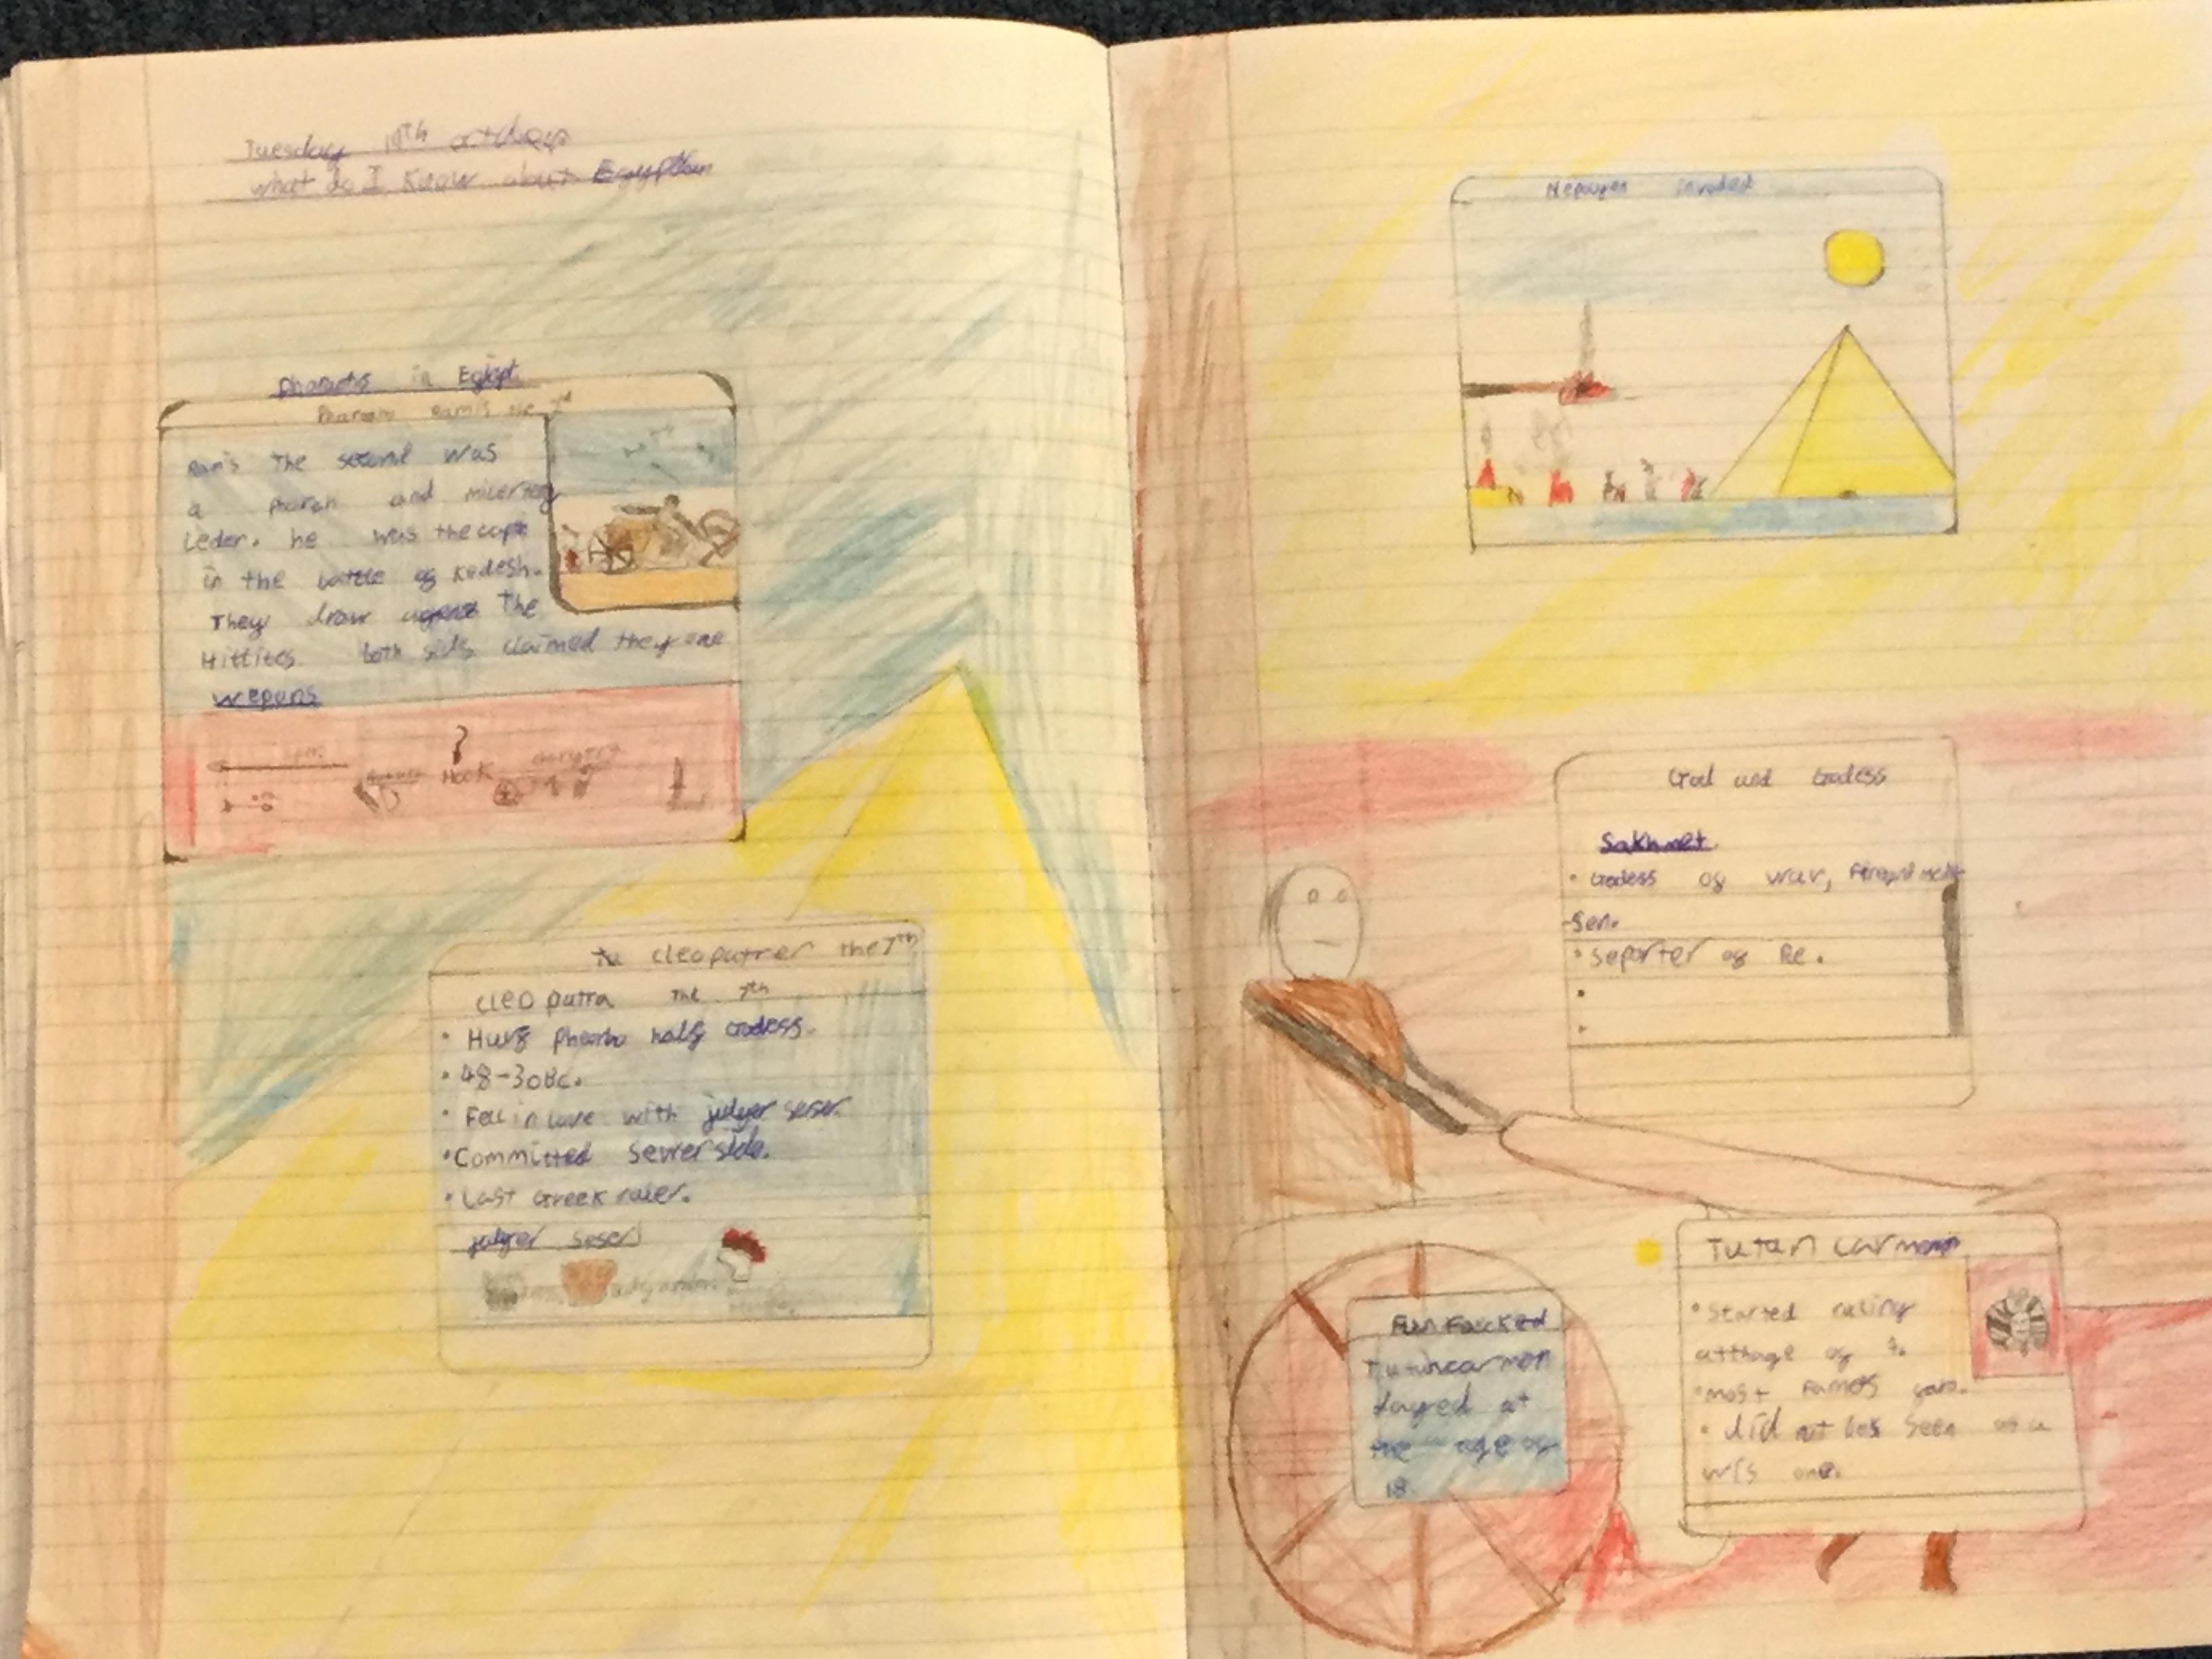 Tuesday 19th
what do I know about Egyptian
pharaohs in Egipt
Pharaoh Ramis the 2nd
Ramis The second was
a Pharah and milertery
Leder. he was the capt
in the battle of Kadesh.
They draw agenst The
Hittites both sids claimed they one
wepons
Hook
Cleopatrer the 7th
cleo patra The 7th
• Half pharaho half Godess.
• 48-30BC.
• Fell in love with julyer seser.
• Committed sewerside.
• Last Greek ruler.
julyer seser
Nepougen invaded
God and Godess
Sakhmet
• Godess of war, fire and medi
-sen.
• seporter of Re.
•
•
Fun Facked
Tutincarmon
dayed at
the age of
18.
Tutan carmon
• Started ruling
at thage of 9.
• most famos faro.
• did not bes seen as a
wis one.